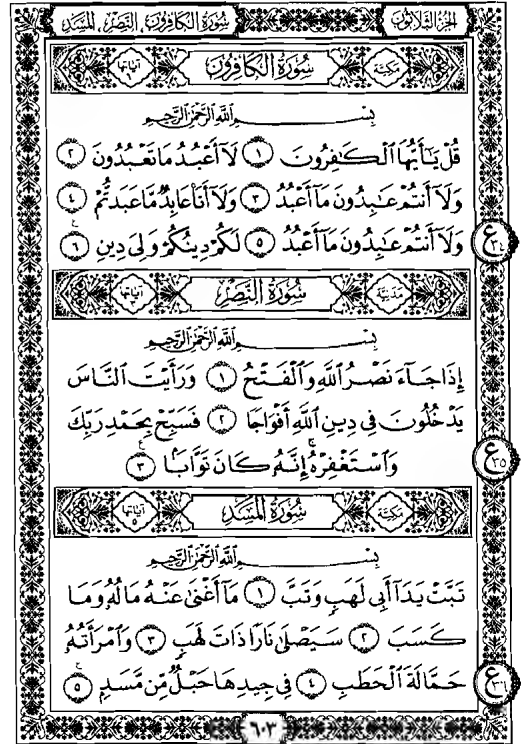 الجزء الثلاثون سورة الكافرون، النصر، المسد
مكية سورة الكافرون آياتها ٦
بِسْمِ اللَّهِ الرَّحْمَٰنِ الرَّحِيمِ
قُلْ يَٰٓأَيُّهَا ٱلْكَٰفِرُونَ ١ لَآ أَعْبُدُ مَا تَعْبُدُونَ ٢
وَلَآ أَنتُمْ عَٰبِدُونَ مَآ أَعْبُدُ ٣ وَلَآ أَنَا۠ عَابِدٌ مَّا عَبَدتُّمْ ٤
وَلَآ أَنتُمْ عَٰبِدُونَ مَآ أَعْبُدُ ٥ لَكُمْ دِينُكُمْ وَلِىَ دِينِ ٦
ع ٣٤
مدنية سورة النصر آياتها
بِسْمِ اللَّهِ الرَّحْمَٰنِ الرَّحِيمِ
إِذَا جَآءَ نَصْرُ ٱللَّهِ وَٱلْفَتْحُ ١ وَرَأَيْتَ ٱلنَّاسَ
يَدْخُلُونَ فِى دِينِ ٱللَّهِ أَفْوَاجًا ٢ فَسَبِّحْ بِحَمْدِ رَبِّكَ
وَٱسْتَغْفِرْهُ إِنَّهُۥ كَانَ تَوَّابًۢا ٣
ع ٣٥
مكية سورة المسد آياتها ٥
بِسْمِ اللَّهِ الرَّحْمَٰنِ الرَّحِيمِ
تَبَّتْ يَدَآ أَبِى لَهَبٍ وَتَبَّ ١ مَآ أَغْنَىٰ عَنْهُ مَالُهُۥ وَمَا
كَسَبَ ٢ سَيَصْلَىٰ نَارًا ذَاتَ لَهَبٍ ٣ وَٱمْرَأَتُهُۥ
حَمَّالَةَ ٱلْحَطَبِ ٤ فِى جِيدِهَا حَبْلٌ مِّن مَّسَدٍۭ ٥
ع ٣٦
٦٠٣